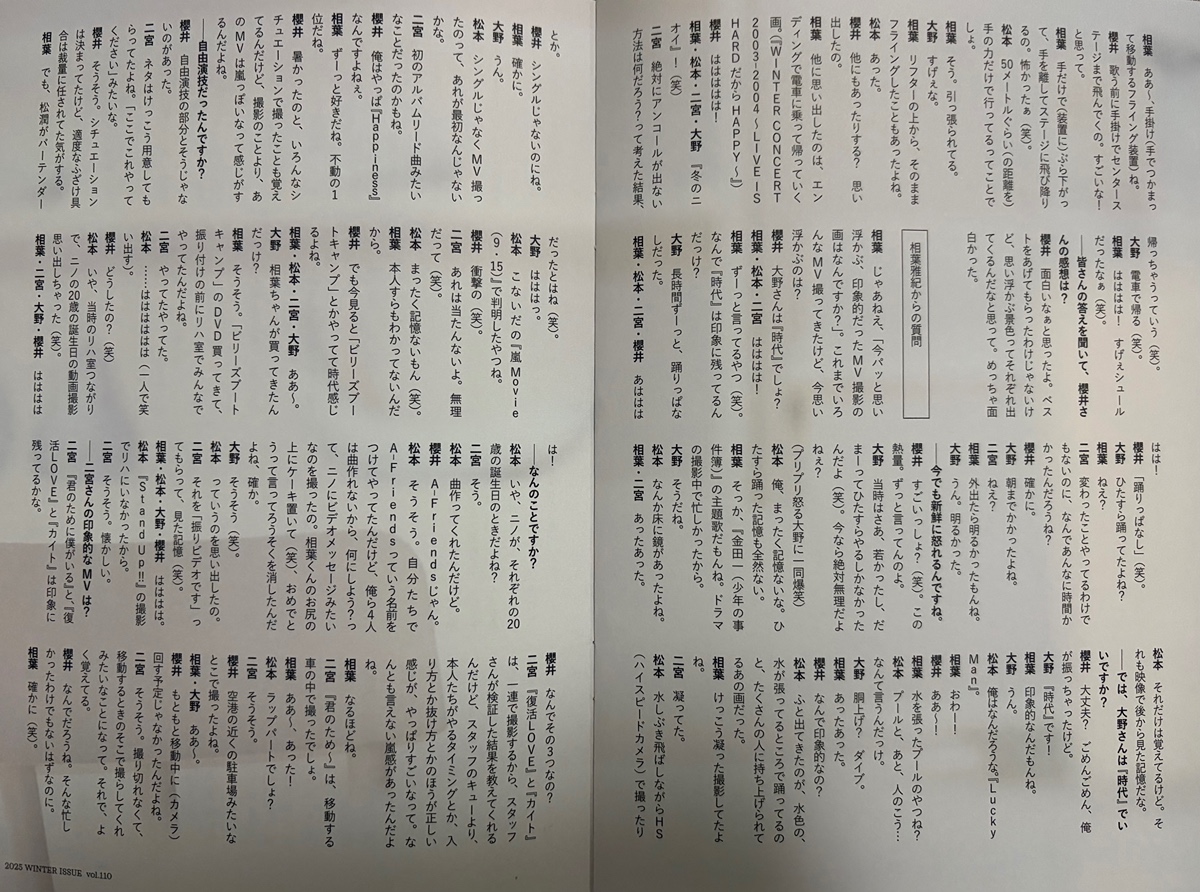 相葉 ああ〜、手掛け(手でつかまっ
て移動するフライング装置)ね。
櫻井 歌う前に手掛けでセンタース
テージまで飛んでくの。すごいな！
と思って。
相葉 手だけで(装置に)ぶら下がっ
て、手を離してステージに飛び降り
るの。怖かったぁ(笑)。
松本 50メートルぐらい(の距離を)
手の力だけで行ってるってことで
しょ。
相葉 そう。引っ張られてる。
大野 すげぇな。
相葉 リフターの上から、そのまま
フライングしたこともあったよね。
松本 あった。
櫻井 他にもあったりする？ 思い
出したの。
相葉 他に思い出したのは、エン
ディングで電車に乗って帰っていく
画。(WINTER CONCERT
2003-2004〜LIVE IS
HARDだからHAPPY〜)
櫻井 はははははは！
相葉・松本・二宮・大野 『冬のニ
オイ』！(笑)
二宮 絶対にアンコールが出ない
方法は何だろう？って考えた結果、
帰っちゃうっていう(笑)。
大野 電車で帰る(笑)。
相葉 ははははは！ すげぇシュール
だったなぁ(笑)。
――皆さんの答えを聞いて、櫻井さ
んの感想は？
櫻井 面白いなぁと思ったよ。ベス
トをあげてもらったわけじゃないけ
ど、思い浮かぶ景色ってそれぞれ出
てくるんだなと思って。めっちゃ面
白かった。
相葉雅紀からの質問
相葉 じゃあねえ、「今パッと思い
浮かぶ、印象的だったMV撮影の
画はなんですか？」。これまでいろ
んなMV撮ってきたけど、今思い
浮かぶのは？
櫻井 大野さんは『時代』でしょ？
相葉・松本・二宮 はははは！
相葉 ずーっと言ってるやつ(笑)。
なんで『時代』は印象に残ってるん
だっけ？
大野 長時間ずーっと、踊りっぱな
しだった。
相葉・松本・二宮・櫻井 あはははは
はは！
櫻井 「踊りっぱなし」(笑)。
大野 ひたすら踊ってたよね？
相葉 ねえ？
二宮 変わったことやってるわけで
もないのに、なんであんなに時間か
かったんだろうね？
櫻井 確かに。
大野 朝までかかったよね。
二宮 ねえ？
相葉 外出たら明るかったもんね。
大野 うん。明るかった。
――今でも新鮮に怒れるんですね。
櫻井 すごいっしょ？(笑)。この
熱量。ずっと言ってんのよ。
大野 当時はさあ、若かったし、だ
まーってひたすらやるしかなかった
んだよ(笑)。今なら絶対無理だよ
ねえ？
(プリプリ怒る大野に一同爆笑)
松本 俺、まったく記憶ないな。ひ
たすら踊った記憶も全然ない。
相葉 そっか、『金田一(少年の事
件簿)』の主題歌だもんね。ドラマ
の撮影中で忙しかったから。
大野 そうだね。
松本 なんか床に鏡があったよね。
相葉・二宮 あったあった。
松本 それだけは覚えてるけど。そ
れも映像で後から見た記憶だな。
――では、大野さんは『時代』でい
いですか？
櫻井 大丈夫？ ごめんごめん、俺
が振っちゃったけど。
大野 『時代』です！
相葉 印象的なんだもんね。
大野 うん。
松本 俺はなんだろうな。『Lucky
Man』。
相葉 おわー！
櫻井 ああー！
相葉 水を張ったプールのやつね？
松本 プールと、あと、人のこう…
なんて言うんだっけ。
大野 胴上げ？ ダイブ。
相葉 あったあった。
櫻井 なんで印象的なの？
松本 ふと出てきたのが、水色の、
水が張ってるところで踊ってるの
と、たくさんの人に持ち上げられて
るあの画だった。
相葉 けっこう凝った撮影してたよ
ね。
二宮 凝ってた。
松本 水しぶき飛ばしながらHS
(ハイスピードカメラ)で撮ったり
とか。
櫻井 シングルじゃないのにね。
相葉 確かに。
大野 うん。
松本 シングルじゃなくMV撮っ
たのって、あれが最初なんじゃない
かな。
二宮 初のアルバムリード曲みたい
なことだったのかもね。
櫻井 俺はやっぱ『Happiness』
なんですよね。
相葉 ずーっと好きだね。不動の1
位だね。
櫻井 暑かったのと、いろんなシ
チュエーションで撮ったことも覚え
てるんだけど、撮影のことより、あ
のMVは嵐っぽいなって感じがす
るんだよね。
――自由演技だったんですか？
櫻井 自由演技の部分とそうじゃな
いのがあった。
二宮 ネタはけっこう用意しても
らってたよね。「ここでこれやって
ください」みたいな。
櫻井 そうそう。シチュエーション
は決まってたけど、適度なふざけ具
合は裁量に任されてた気がする。
相葉 でも、松潤がバーテンダー
だったとはね(笑)。
大野 はははっ。
松本 こないだの『嵐Movie
(9・15)』で判明したやつね。
櫻井 衝撃の(笑)。
二宮 あれは当たんないよ。無理
だって(笑)。
松本 まったく記憶ないもん(笑)。
相葉 本人すらもわかってないんだ
から。
櫻井 でも今見ると「ビリーズブー
トキャンプ」とかやってて時代感じ
るよね。
相葉・松本・二宮・大野 ああ〜。
大野 相葉ちゃんが買ってきたん
だっけ？
相葉 そうそう。「ビリーズブート
キャンプ」のDVD買ってきて、
振り付けの前にリハ室でみんなで
やってたんだよね。
二宮 やってたやってた。
松本 ……はははははは(一人で笑
い出す)。
櫻井 どうしたの？(笑)
松本 いや、当時のリハ室つながり
で、ニノの20歳の誕生日の動画撮影
思い出しちゃった(笑)。
相葉・二宮・大野・櫻井 ははははは
は！
――なんのことですか？
松本 いや、ニノが、それぞれの20
歳の誕生日のときだよね？
二宮 そう。
松本 曲作ってくれたんだけど。
櫻井 A-Friendsじゃん。
松本 そうそう。自分たちで
A-Friendsっていう名前を
つけてやってたんだけど、俺ら4人
は曲作れないから、何にしよう？っ
て、ニノにビデオメッセージみたい
なのを撮ったの。相葉くんのお尻の
上にケーキ置いて(笑)、おめでと
うって言ってろうそくを消したんだ
よね、確か。
大野 そうそう(笑)。
松本 っていうのを思い出したの。
二宮 それを「振りビデオです」っ
てもらって、見た記憶(笑)。
相葉・松本・大野・櫻井 はははは。
松本 『StandUp!!』の撮影
でリハにいなかったから。
二宮 そうそう。懐かしい。
――二宮さんの印象的なMVは？
二宮 『君のために僕がいる』と、『復
活LOVE』と『カイト』は印象に
残ってるかな。
櫻井 なんでその3つなの？
二宮 『復活LOVE』と『カイト』
は、一連で撮影するから、スタッフ
さんが検証した結果を教えてくれる
んだけど、スタッフのキューより、
本人たちがやるタイミングとか、入
り方とか抜け方とかのほうが正しい
感じが、やっぱりすごいなって。な
んとも言えない嵐感があったんだよ
ね。
相葉 なるほどね。
二宮 『君のため〜』は、移動する
車の中で撮ったでしょ。
相葉 ああ〜、あった！
松本 ラップパートでしょ？
二宮 そうそう。
櫻井 空港の近くの駐車場みたいな
とこで撮ったよね。
相葉・大野 ああ〜。
櫻井 もともと移動中に(カメラ)
回す予定じゃなかったんだよね。
二宮 そうそう。撮り切れなくて、
移動するときのそこで撮らしてくれ
みたいなことになって。それで、よ
く覚えてる。
櫻井 なんでだろうね。そんな忙し
かったわけでもないはずなのに。
相葉 確かに(笑)。
2025 WINTER ISSUE vol.110